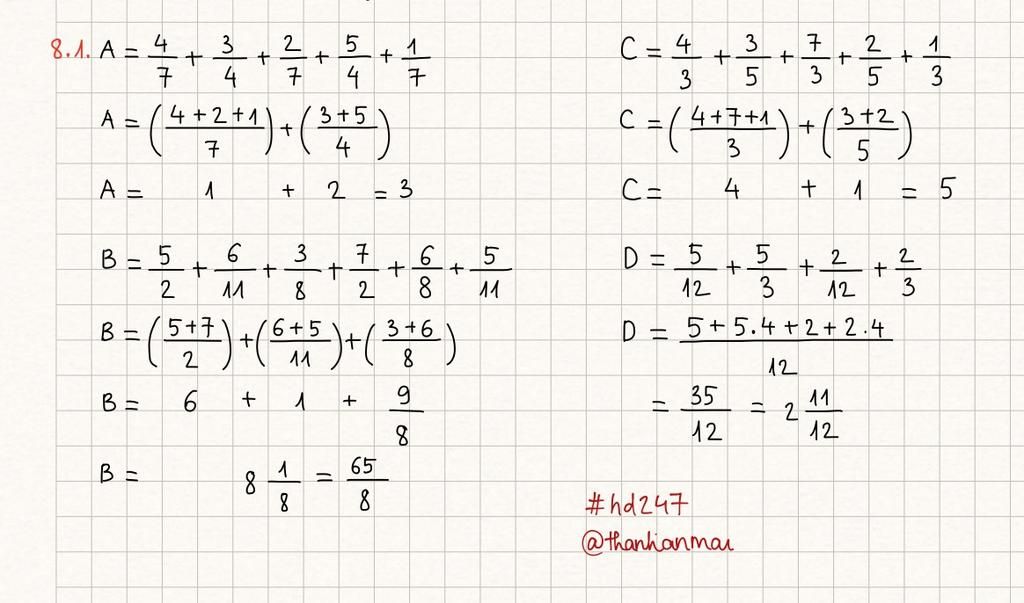 8.1. A = 4/7 + 3/4 + 2/7 + 5/4 + 1/7
A = ((4+2+1)/7) + ((3+5)/4)
A = 1 + 2 = 3
B = 5/2 + 6/11 + 3/8 + 7/2 + 6/8 + 5/11
B = ((5+7)/2) + ((6+5)/11) + ((3+6)/8)
B = 6 + 1 + 9/8
B = 8 1/8 = 65/8
C = 4/3 + 3/5 + 7/3 + 2/5 + 1/3
C = ((4+7+1)/3) + ((3+2)/5)
C = 4 + 1 = 5
D = 5/12 + 5/3 + 2/12 + 2/3
D = (5+5.4+2+2.4)/12
= 35/12 = 2 11/12
#hd247
@thanhanmau